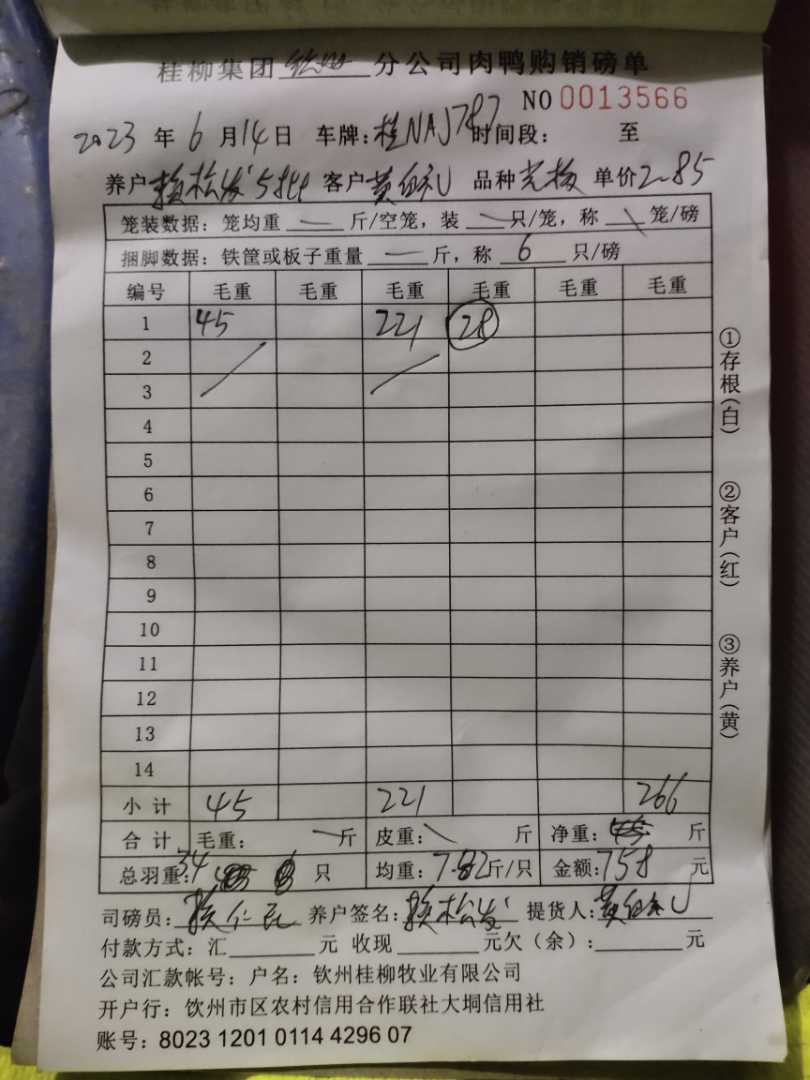 桂柳集团 分公司肉鸭购销磅单
NO 0013566
2023 年 6 月 14 日 车牌:桂NAJ787 时间段: 至
养户 赖松发 5批 客户 黄 品种 单价 2.85
笼装数据：笼均重 — 斤/空笼，装 — 只/笼，称 \ 笼/磅
捆脚数据：铁筐或板子重量 — 斤，称 6 只/磅
编号 毛重 毛重 毛重 毛重 毛重 毛重
1 45 221 28
2
3
4
5
6
7
8
9
10
11
12
13
14
小 计 45 221 266
合 计 毛重: 斤 皮重: 斤 净重: 斤
总羽重: 34 只 均重: 7.82 斤/只 金额: 758 元
司磅员: 赖仁 养户签名: 赖松发 提货人: 黄
付款方式：汇 元 收现 元欠（余）: 元
公司汇款帐号：户名：钦州桂柳牧业有限公司
开户行：钦州市区农村信用合作联社大垌信用社
账号：8023 1201 0114 4296 07
①存根(白)
②客户(红)
③养户(黄)